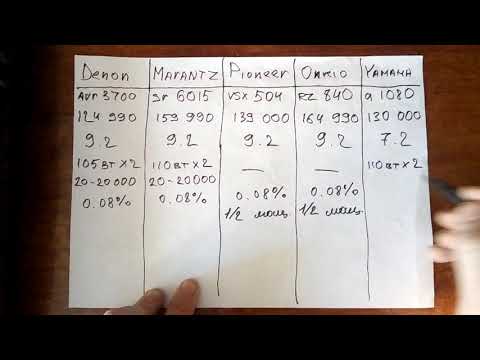 Denon Marantz Pioneer Onkio Yamaha
AVR 3700 Sr 6015 VSX 504 RZ 840 a 1080
124 990 159 990 139 000 164 990 130 000
9.2 9.2 9.2 9.2 7.2
105 Вт x 2 110 Вт x 2 — — 110 Вт x 2
20-20 000 20-20000
0.08% 0.08% 0.08% 0.08%
1/2 мощ. 1/2 мощ.